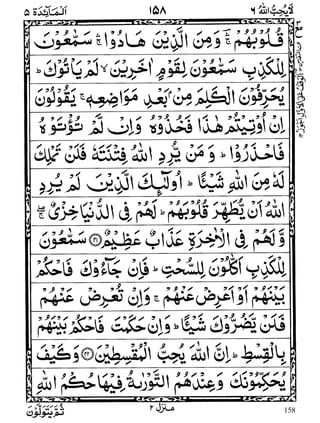 لَا يُحِبُّ اللّٰهُ ٦
١٥٨
اَلْمَآئِدَة ٥
قُلُوْبُهُمْ ۛۚ وَمِنَ الَّذِيْنَ هَادُوْا ۛۚ سَمّٰعُوْنَ
لِلْكَذِبِ سَمّٰعُوْنَ لِقَوْمٍ اٰخَرِيْنَ ۙ لَمْ يَاْتُوْكَ ؕ
يُحَرِّفُوْنَ الْكَلِمَ مِنْۢ بَعْدِ مَوَاضِعِهٖ ۚ يَقُوْلُوْنَ
اِنْ اُوْتِيْتُمْ هٰذَا فَخُذُوْهُ وَاِنْ لَّمْ تُؤْتَوْهُ
فَاحْذَرُوْا ؕ وَمَنْ يُّرِدِ اللّٰهُ فِتْنَتَهٗ فَلَنْ تَمْلِكَ
لَهٗ مِنَ اللّٰهِ شَيْـًٔا ؕ اُولٰٓئِكَ الَّذِيْنَ لَمْ يُرِدِ
اللّٰهُ اَنْ يُّطَهِّرَ قُلُوْبَهُمْ ؕ لَهُمْ فِى الدُّنْيَا خِزْىٌ ۖۚ
وَّلَهُمْ فِى الْاٰخِرَةِ عَذَابٌ عَظِيْمٌ ﴿٤١﴾ سَمّٰعُوْنَ
لِلْكَذِبِ اَكّٰلُوْنَ لِلسُّحْتِ ؕ فَاِنْ جَآءُوْكَ فَاحْكُمْ
بَيْنَهُمْ اَوْ اَعْرِضْ عَنْهُمْ ۚ وَاِنْ تُعْرِضْ عَنْهُمْ
فَلَنْ يَّضُرُّوْكَ شَيْـًٔا ؕ وَاِنْ حَكَمْتَ فَاحْكُمْ بَيْنَهُمْ
بِالْقِسْطِ ؕ اِنَّ اللّٰهَ يُحِبُّ الْمُقْسِطِيْنَ ﴿٤٢﴾ وَكَيْفَ
يُحَكِّمُوْنَكَ وَعِنْدَهُمُ التَّوْرٰىةُ فِيْهَا حُكْمُ اللّٰهِ
ثُمَّ يَتَوَلَّوْنَ
منزل ٢
158